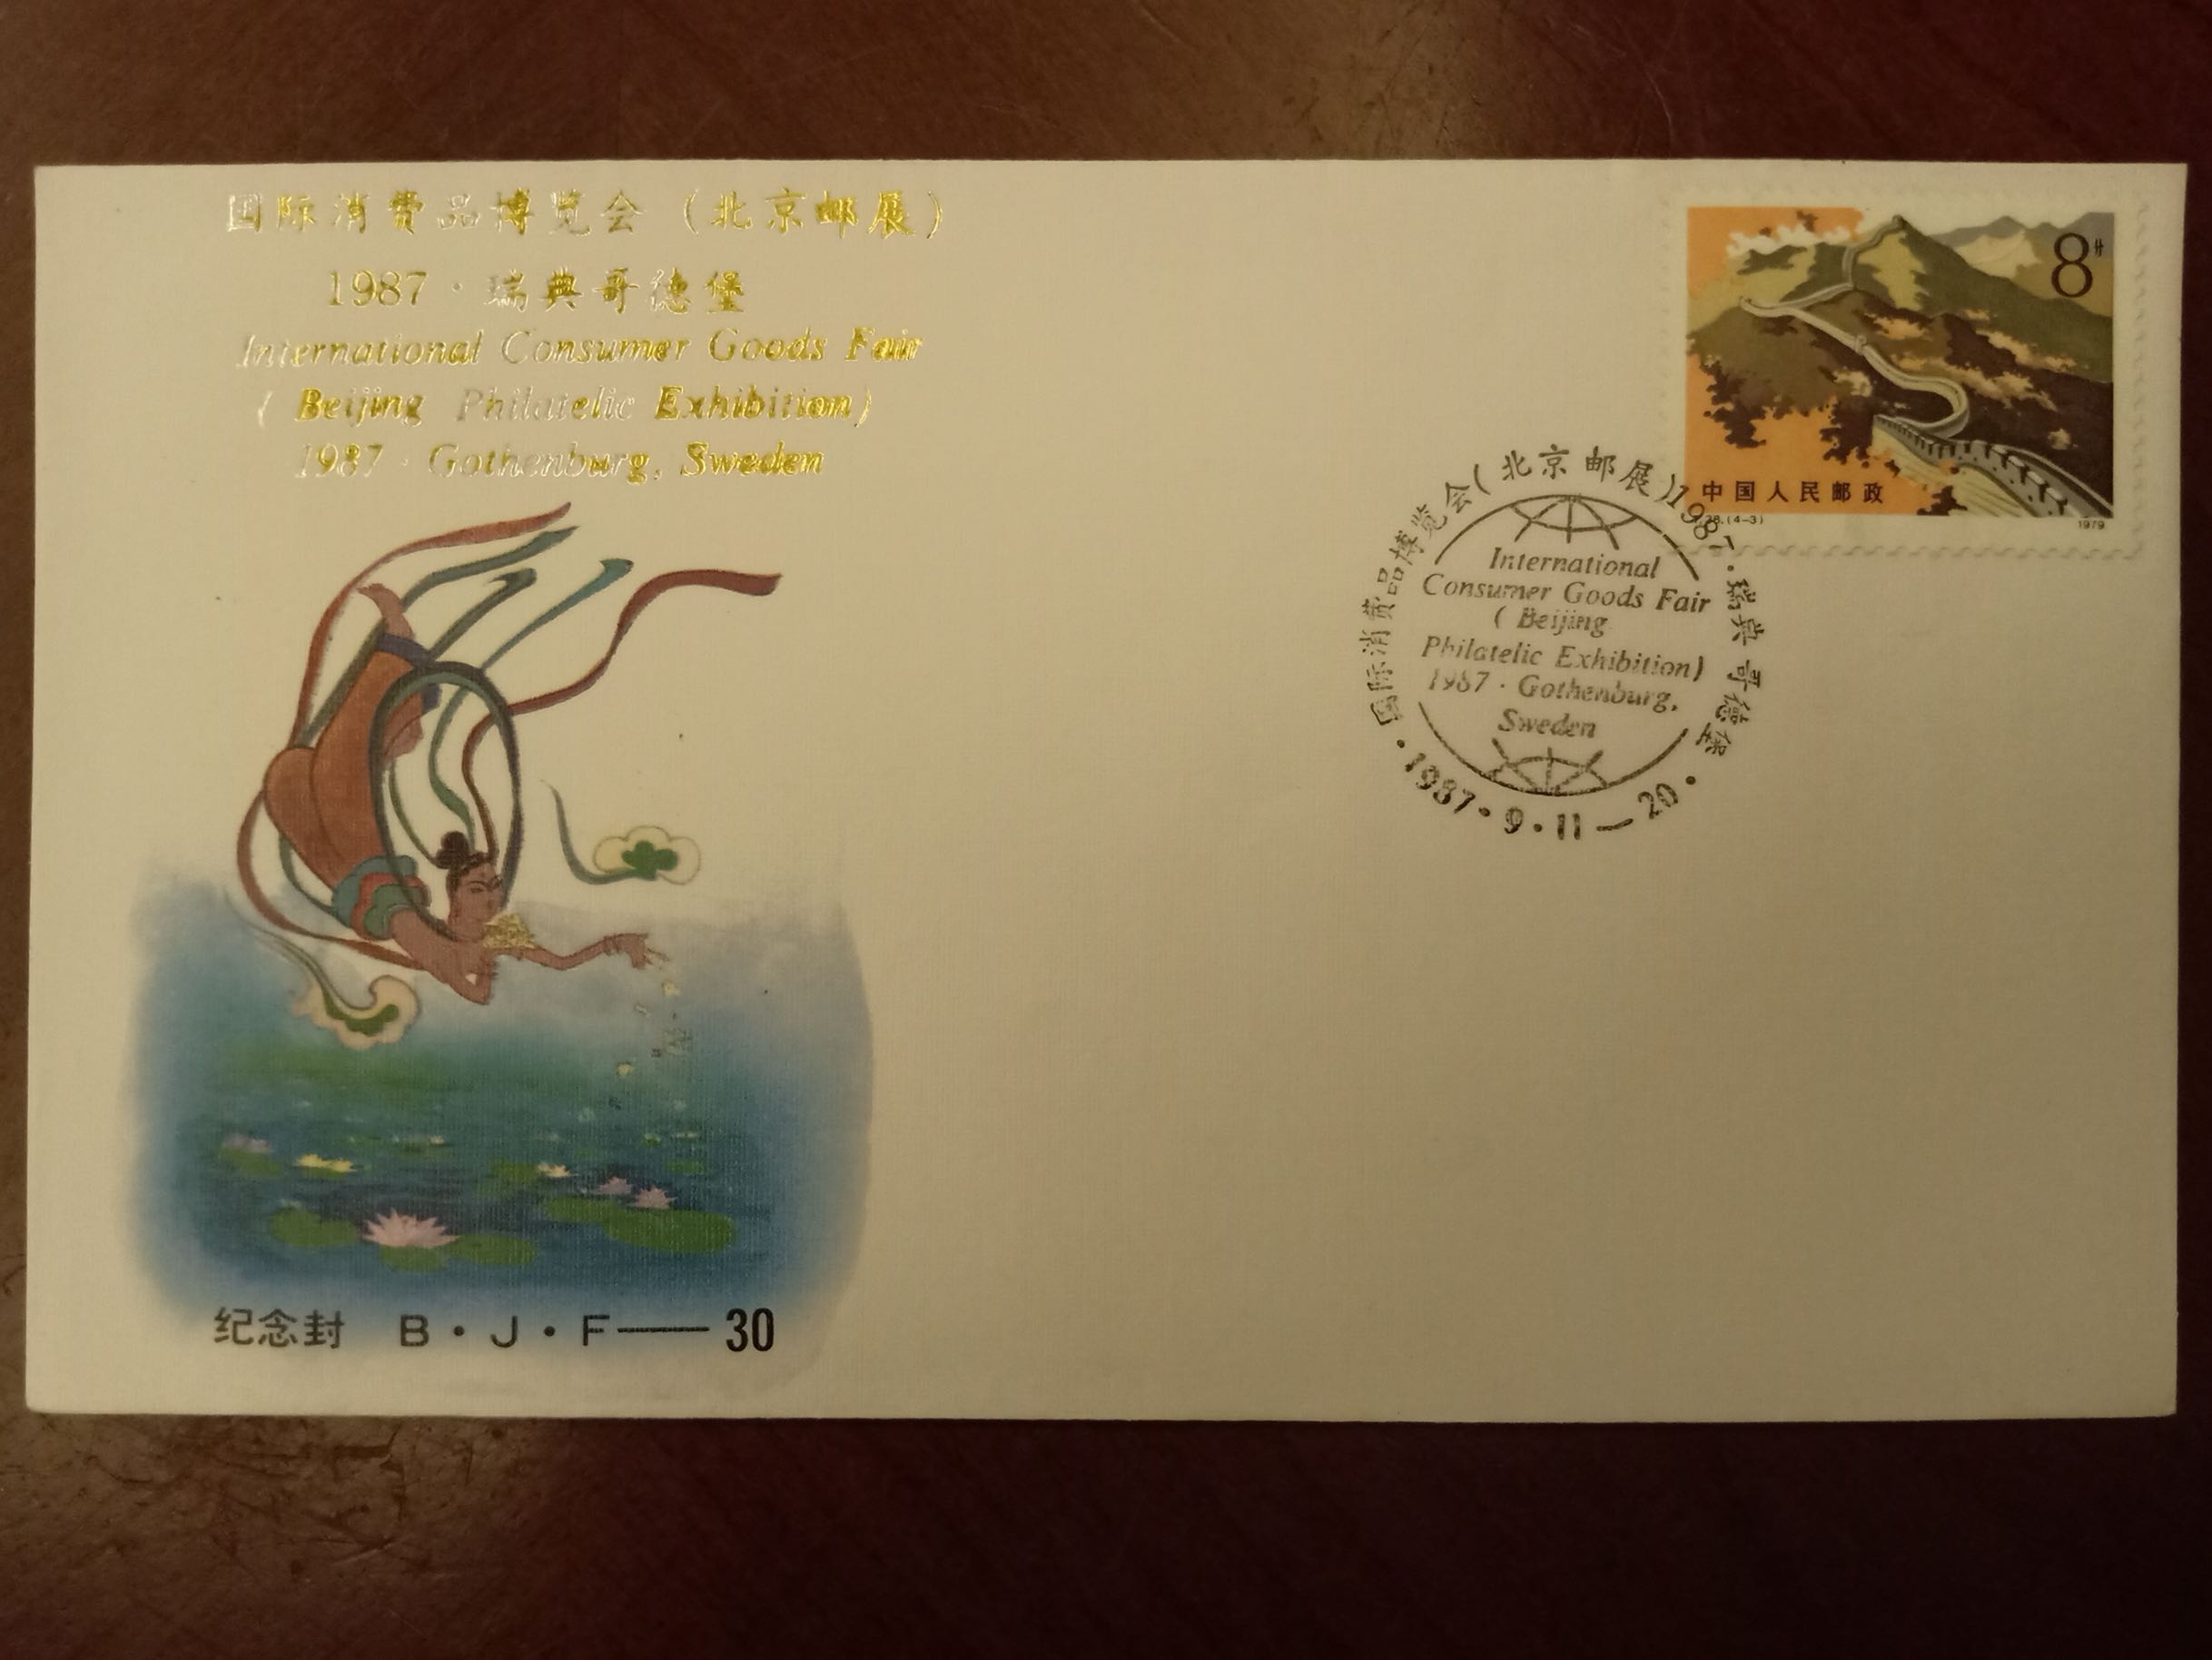 国际消费品博览会（北京邮展）
1987·瑞典哥德堡
International Consumer Goods Fair
( Beijing Philatelic Exhibition)
1987·Gothenburg, Sweden
8分
中国人民邮政
28.(4-3)
1979
国际消费品博览会(北京邮展)1987·瑞典哥德堡
International
Consumer Goods Fair
( Beijing
Philatelic Exhibition)
1987·Gothenburg,
Sweden
·1987·9·11—20·
纪念封 B·J·F——30